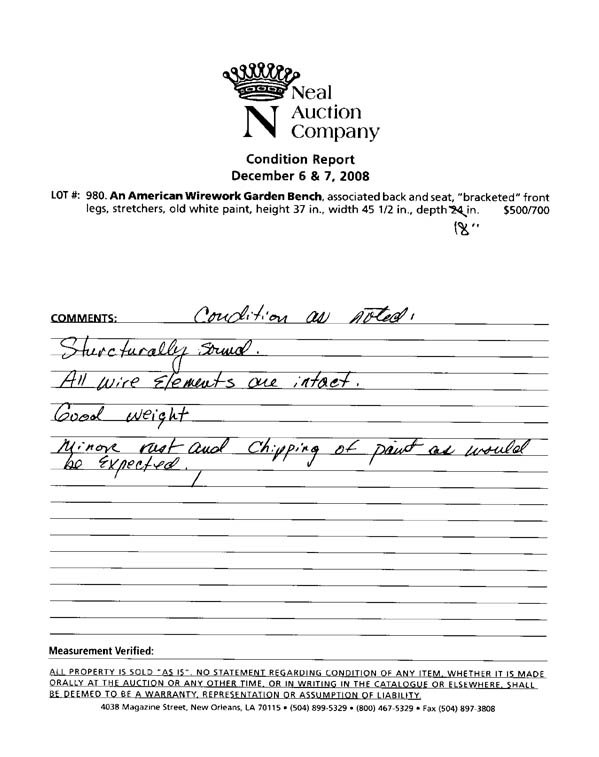 Neal
N Auction
Company
Condition Report
December 6 & 7, 2008
LOT #: 980. An American Wirework Garden Bench, associated back and seat, "bracketed" front
legs, stretchers, old white paint, height 37 in., width 45 1/2 in., depth 24 in. $500/700
18"
COMMENTS: Condition as noted.
Sturcturally sound.
All wire Elements are intact.
Good weight
Minor rust and Chipping of paint as would
be Expected.
Measurement Verified:
ALL PROPERTY IS SOLD "AS IS". NO STATEMENT REGARDING CONDITION OF ANY ITEM, WHETHER IT IS MADE
ORALLY AT THE AUCTION OR ANY OTHER TIME, OR IN WRITING IN THE CATALOGUE OR ELSEWHERE, SHALL
BE DEEMED TO BE A WARRANTY, REPRESENTATION OR ASSUMPTION OF LIABILITY.
4038 Magazine Street, New Orleans, LA 70115 • (504) 899-5329 • (800) 467-5329 • Fax (504) 897-3808